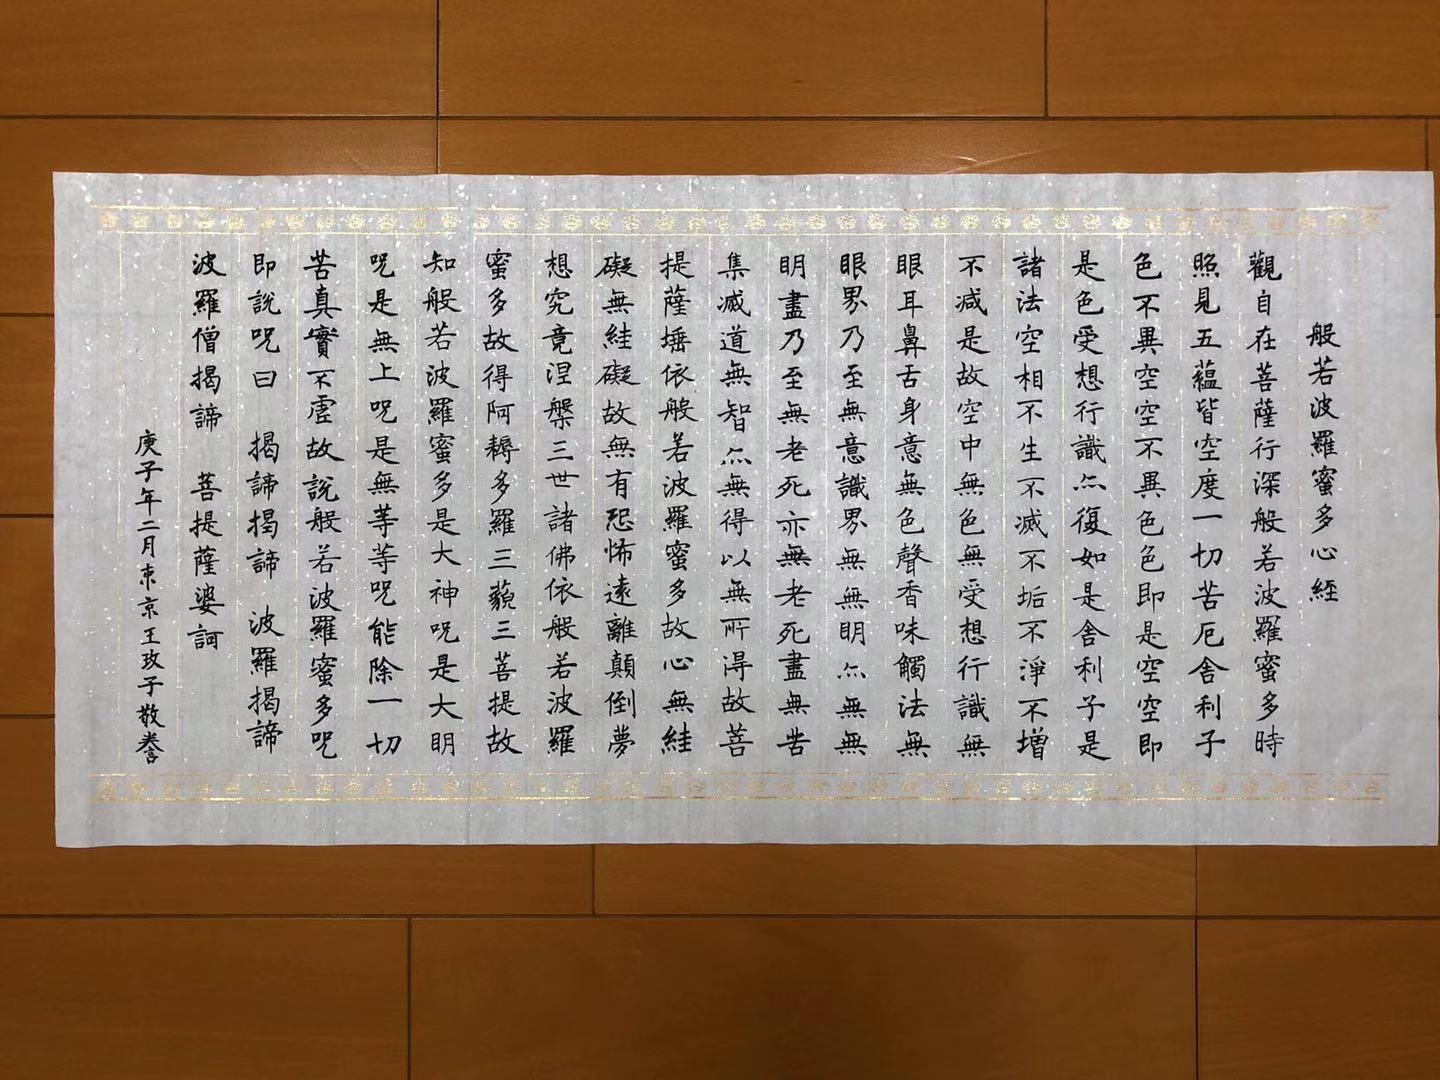 般若波羅蜜多心經
觀自在菩薩行深般若波羅蜜多時
照見五蘊皆空度一切苦厄舍利子
色不異空空不異色色即是空空即
是色受想行識亦復如是舍利子是
諸法空相不生不滅不垢不淨不增
不減是故空中無色無受想行識無
眼耳鼻舌身意無色聲香味觸法無
眼界乃至無意識界無無明亦無無
明盡乃至無老死亦無老死盡無苦
集滅道無智亦無得以無所得故菩
提薩埵依般若波羅蜜多故心無絓
礙無絓礙故無有恐怖遠離顛倒夢
想究竟涅槃三世諸佛依般若波羅
蜜多故得阿耨多羅三藐三菩提故
知般若波羅蜜多是大神呪是大明
呪是無上呪是無等等呪能除一切
苦真實不虛故說般若波羅蜜多呪
即說呪曰 揭諦揭諦 波羅揭諦
波羅僧揭諦 菩提薩婆訶
庚子年二月東京王玫子敬誊